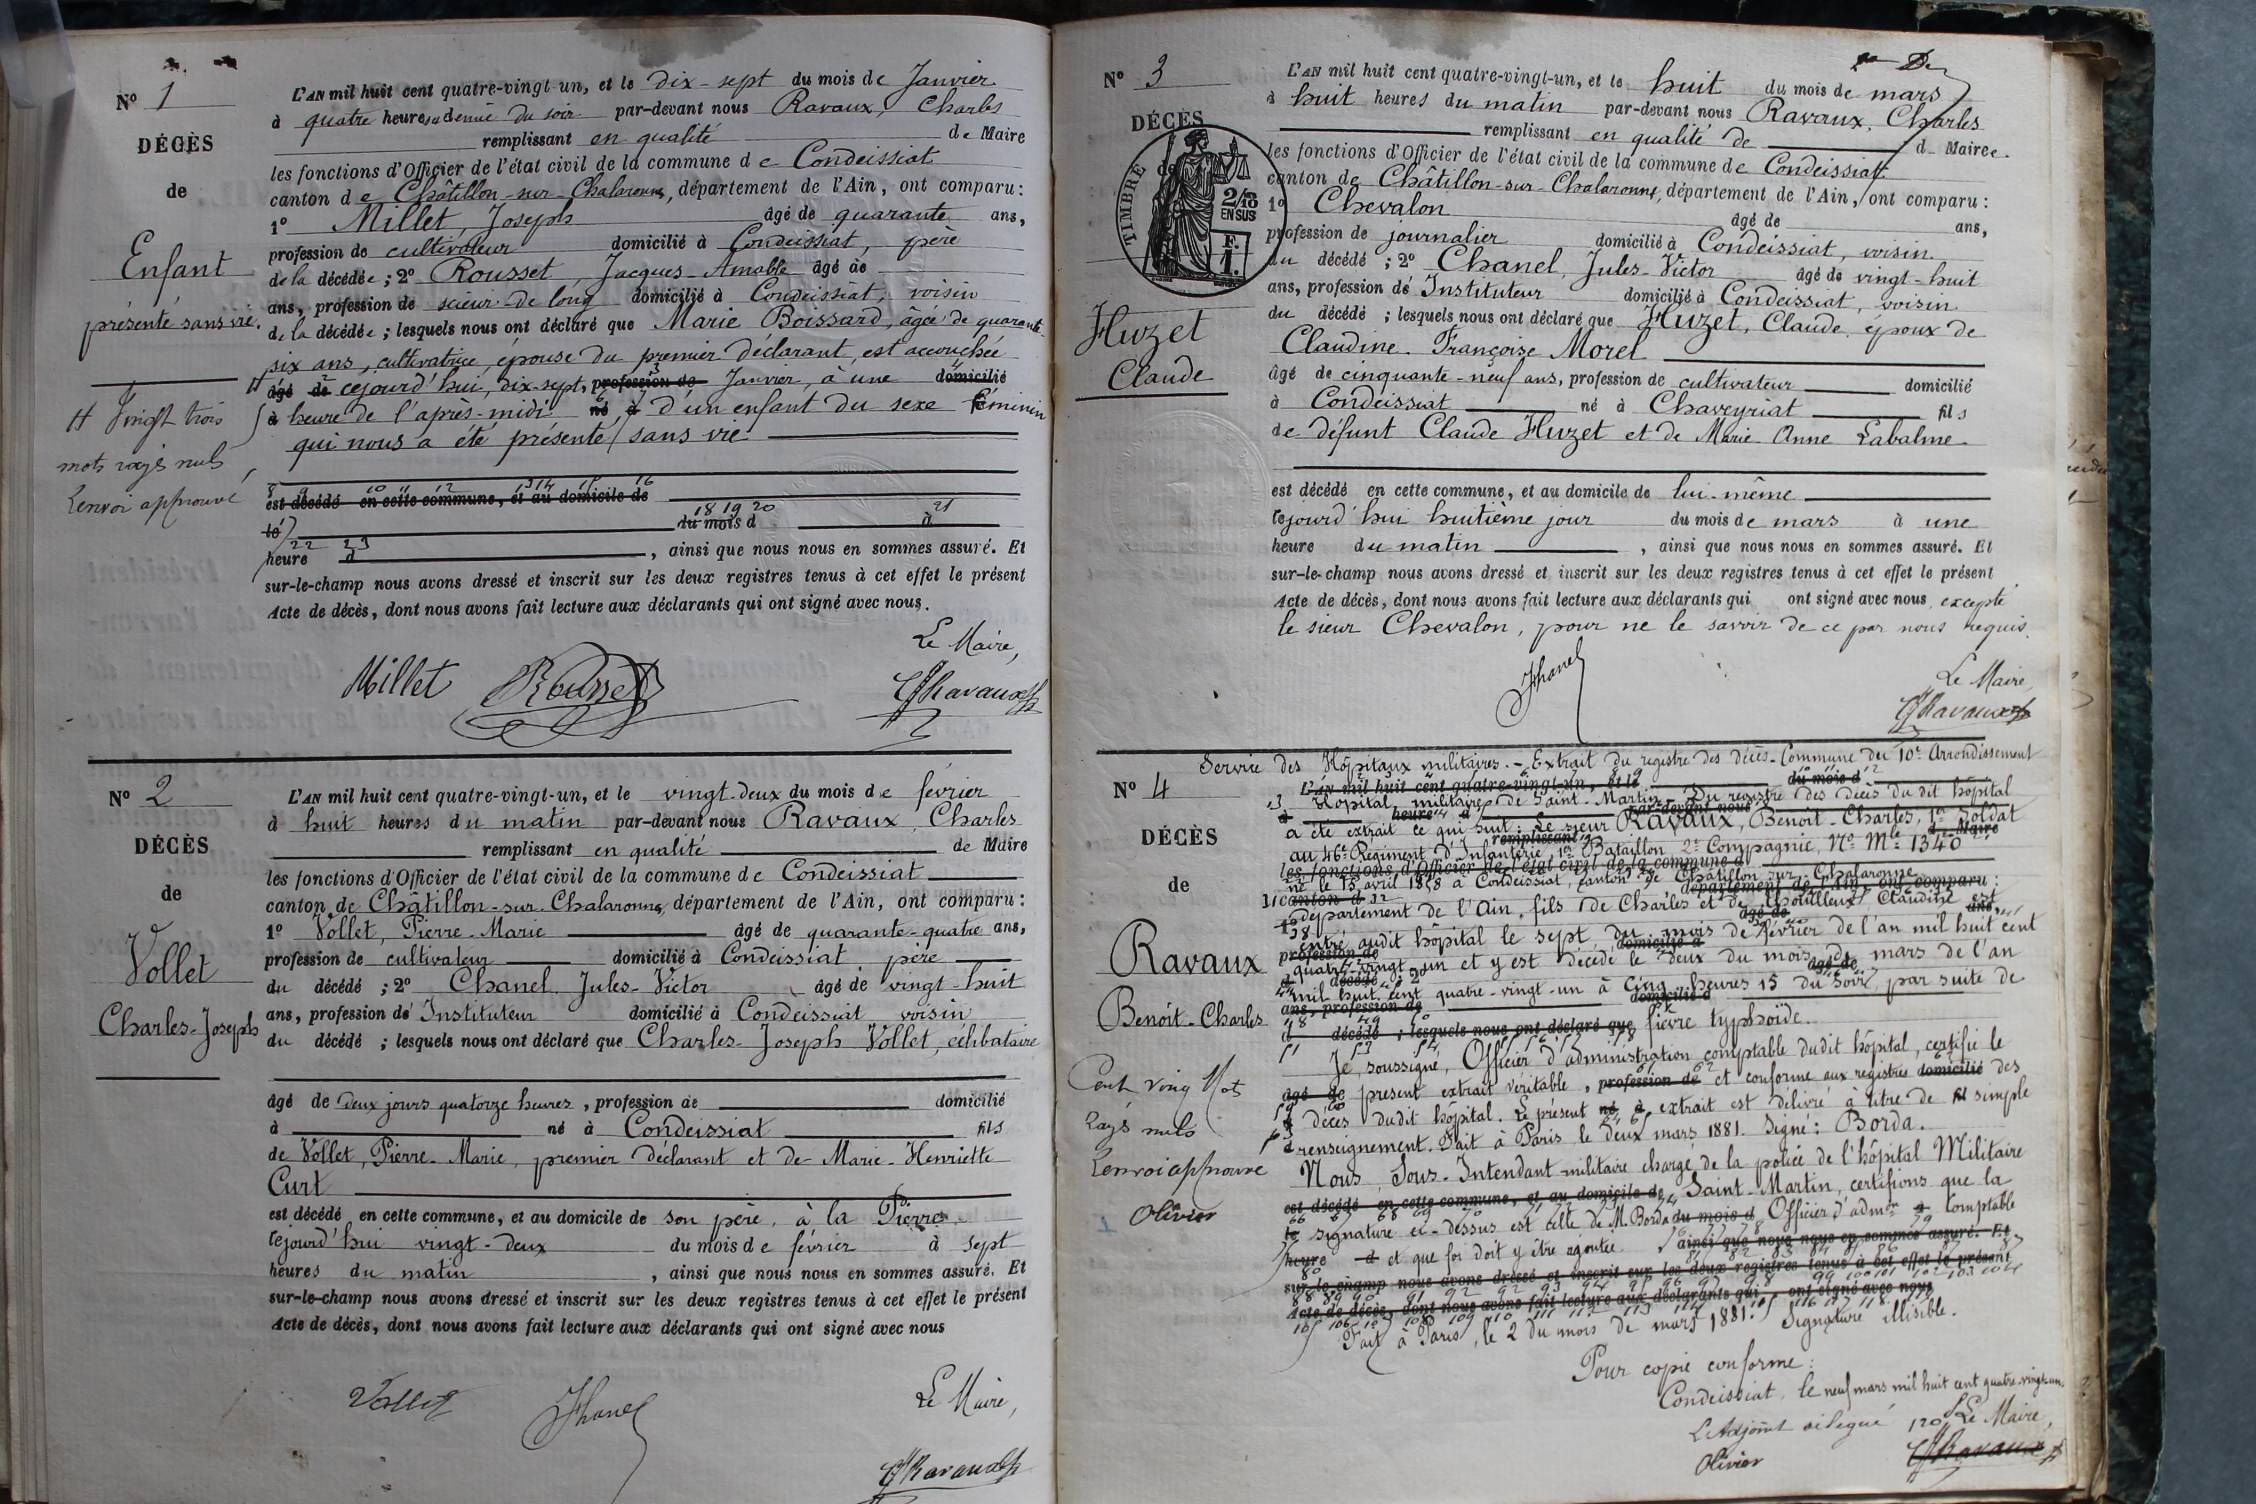 N° 1
DÉCÈS
de
Enfant
présenté sans vie.
H Vingt trois
mots rayés nuls
Renvoi approuvé
L'AN mil huit cent quatre-vingt-un, et le dix-sept du mois de Janvier
à quatre heures et demie du soir par-devant nous Ravaux, Charles
remplissant en qualité de Maire
les fonctions d'Officier de l'état civil de la commune de Condeissiat
canton de Châtillon-sur-Chalaronne, département de l'Ain, ont comparu :
1° Millet, Joseph âgé de quarante ans,
profession de cultivateur domicilié à Condeissiat, père
de la décédée ; 2° Rousset Jacques-Amable âgé de
ans, profession de scieur de long domicilié à Condeissiat, voisin
de la décédée ; lesquels nous ont déclaré que Marie Boissard, âgée de quarante-
six ans, cultivatrice, épouse du premier déclarant, est accouchée
âgé de cejourd'hui, dix-sept, profession de Janvier, à une domicilié
à heure de l'après-midi né à d'un enfant du sexe féminin
qui nous a été présenté sans vie
8 9 10 11 12 13 14 15 16
est décédé en cette commune, et au domicile de
18 19 20 21
le du mois d à
22 23
heure d , ainsi que nous nous en sommes assuré. Et
sur-le-champ nous avons dressé et inscrit sur les deux registres tenus à cet effet le présent
Acte de décès, dont nous avons fait lecture aux déclarants qui ont signé avec nous.
Le Maire,
Millet Rousset ChRavaux
N° 2
DÉCÈS
de
Vollet
Charles-Joseph
L'AN mil huit cent quatre-vingt-un, et le vingt-deux du mois de février
à huit heures du matin par-devant nous Ravaux, Charles
remplissant en qualité de Maire
les fonctions d'Officier de l'état civil de la commune de Condeissiat
canton de Châtillon-sur-Chalaronne, département de l'Ain, ont comparu :
1° Vollet, Pierre-Marie âgé de quarante-quatre ans,
profession de cultivateur domicilié à Condeissiat père
du décédé ; 2° Chanel, Jules-Victor âgé de vingt-huit
ans, profession de Instituteur domicilié à Condeissiat voisin
du décédé ; lesquels nous ont déclaré que Charles-Joseph Vollet, célibataire
âgé de deux jours quatorze heures, profession de domicilié
à né à Condeissiat fils
de Vollet, Pierre-Marie, premier déclarant et de Marie-Henriette
Curt
est décédé en cette commune, et au domicile de son père, à la Pierre
cejourd'hui vingt-deux du mois de février à sept
heures du matin , ainsi que nous nous en sommes assuré. Et
sur-le-champ nous avons dressé et inscrit sur les deux registres tenus à cet effet le présent
Acte de décès, dont nous avons fait lecture aux déclarants qui ont signé avec nous
Le Maire,
Vollet JChanel
ChRavaux
N° 3
DÉCÈS
de
TIMBRE
2/10
EN SUS
F.
1.
Huzet
Claude
L'AN mil huit cent quatre-vingt-un, et le huit du mois de mars
à huit heures du matin par-devant nous Ravaux, Charles
remplissant en qualité de d Maire.
les fonctions d'Officier de l'état civil de la commune de Condeissiat
canton de Châtillon-sur-Chalaronne, département de l'Ain, ont comparu :
1° Chevalon âgé de ans,
profession de journalier domicilié à Condeissiat, voisin
du décédé ; 2° Chanel, Jules-Victor âgé de vingt-huit
ans, profession de Instituteur domicilié à Condeissiat, voisin
du décédé ; lesquels nous ont déclaré que Huzet, Claude, époux de
Claudine-Françoise Morel
âgé de cinquante-neuf ans, profession de cultivateur domicilié
à Condeissiat né à Chaveyriat fils
de défunt Claude Huzet et de Marie Anne Labalme
est décédé en cette commune, et au domicile de lui-même
cejourd'hui huitième jour du mois de mars à une
heure du matin , ainsi que nous nous en sommes assuré. Et
sur-le-champ nous avons dressé et inscrit sur les deux registres tenus à cet effet le présent
Acte de décès, dont nous avons fait lecture aux déclarants qui ont signé avec nous, excepté
le sieur Chevalon, pour ne le savoir de ce par nous requis.
JChanel
Le Maire,
ChRavaux
N° 4
DÉCÈS
de
Ravaux
Benoit-Charles
Cent vingt Mots
rayés nuls
Renvoi approuvé
Olivier
Service des Hôpitaux militaires.- Extrait du registre des décès-Commune du 10e Arrondissement
L'AN mil huit cent quatre-vingt-un, et le du mois d
Hôpital militaire de Saint-Martin. Du registre des décès du dit hôpital
à heure d par-devant nous
a été extrait ce qui suit : Le sieur Ravaux, Benoit-Charles, 1re Soldat
remplissant d Maire
au 46e Régiment d'Infanterie, 1er Bataillon 2e Compagnie, No Mle 1340
les fonctions d'Officier de l'état civil de la commune d
né le 15 avril 1858 à Condeissiat, canton de Châtillon-sur-Chalaronne
canton d département de l'Ain, ont comparu :
département de l'Ain, fils de Charles et de Claudine est
1° âgé de ans,
entré audit hôpital le sept du mois de février de l'an mil huit cent
profession de domicilié à
quatre-vingt-un et y est décédé le deux du mois de mars de l'an
d décédé ; 2° âgé de
mil huit cent quatre-vingt-un à cinq heures 15 du soir, par suite de
ans, profession de domicilié à
d décédé ; lesquels nous ont déclaré que fièvre typhoïde.
Je, soussigné, Officier d'administration comptable dudit hôpital, certifie le
âgé de présent extrait véritable, profession de et conforme aux registres domicilié des
à décès dudit hôpital. Le présent né à extrait est délivré à titre de fil simple
de renseignement. Fait à Paris le deux mars 1881. Signé : Borda.
Nous, Sous-Intendant militaire chargé de la police de l'hôpital Militaire
est décédé en cette commune, et au domicile de Saint-Martin, certifions que la
le signature ci-dessus est celle de M. Borda du mois d Officier d'admon à comptable
heure d et que foi doit y être ajoutée. ainsi que nous nous en sommes assuré. Et
sur-le-champ nous avons dressé et inscrit sur les deux registres tenus à cet effet le présent
Acte de décès, dont nous avons fait lecture aux déclarants qui ont signé avec nous
Fait à Paris, le 2 du mois de mars 1881. Signature illisible.
Pour copie conforme :
Condeissiat, le neuf mars mil huit cent quatre-vingt-un.
L'Adjoint délégué 120 Le Maire,
Olivier ChRavaux